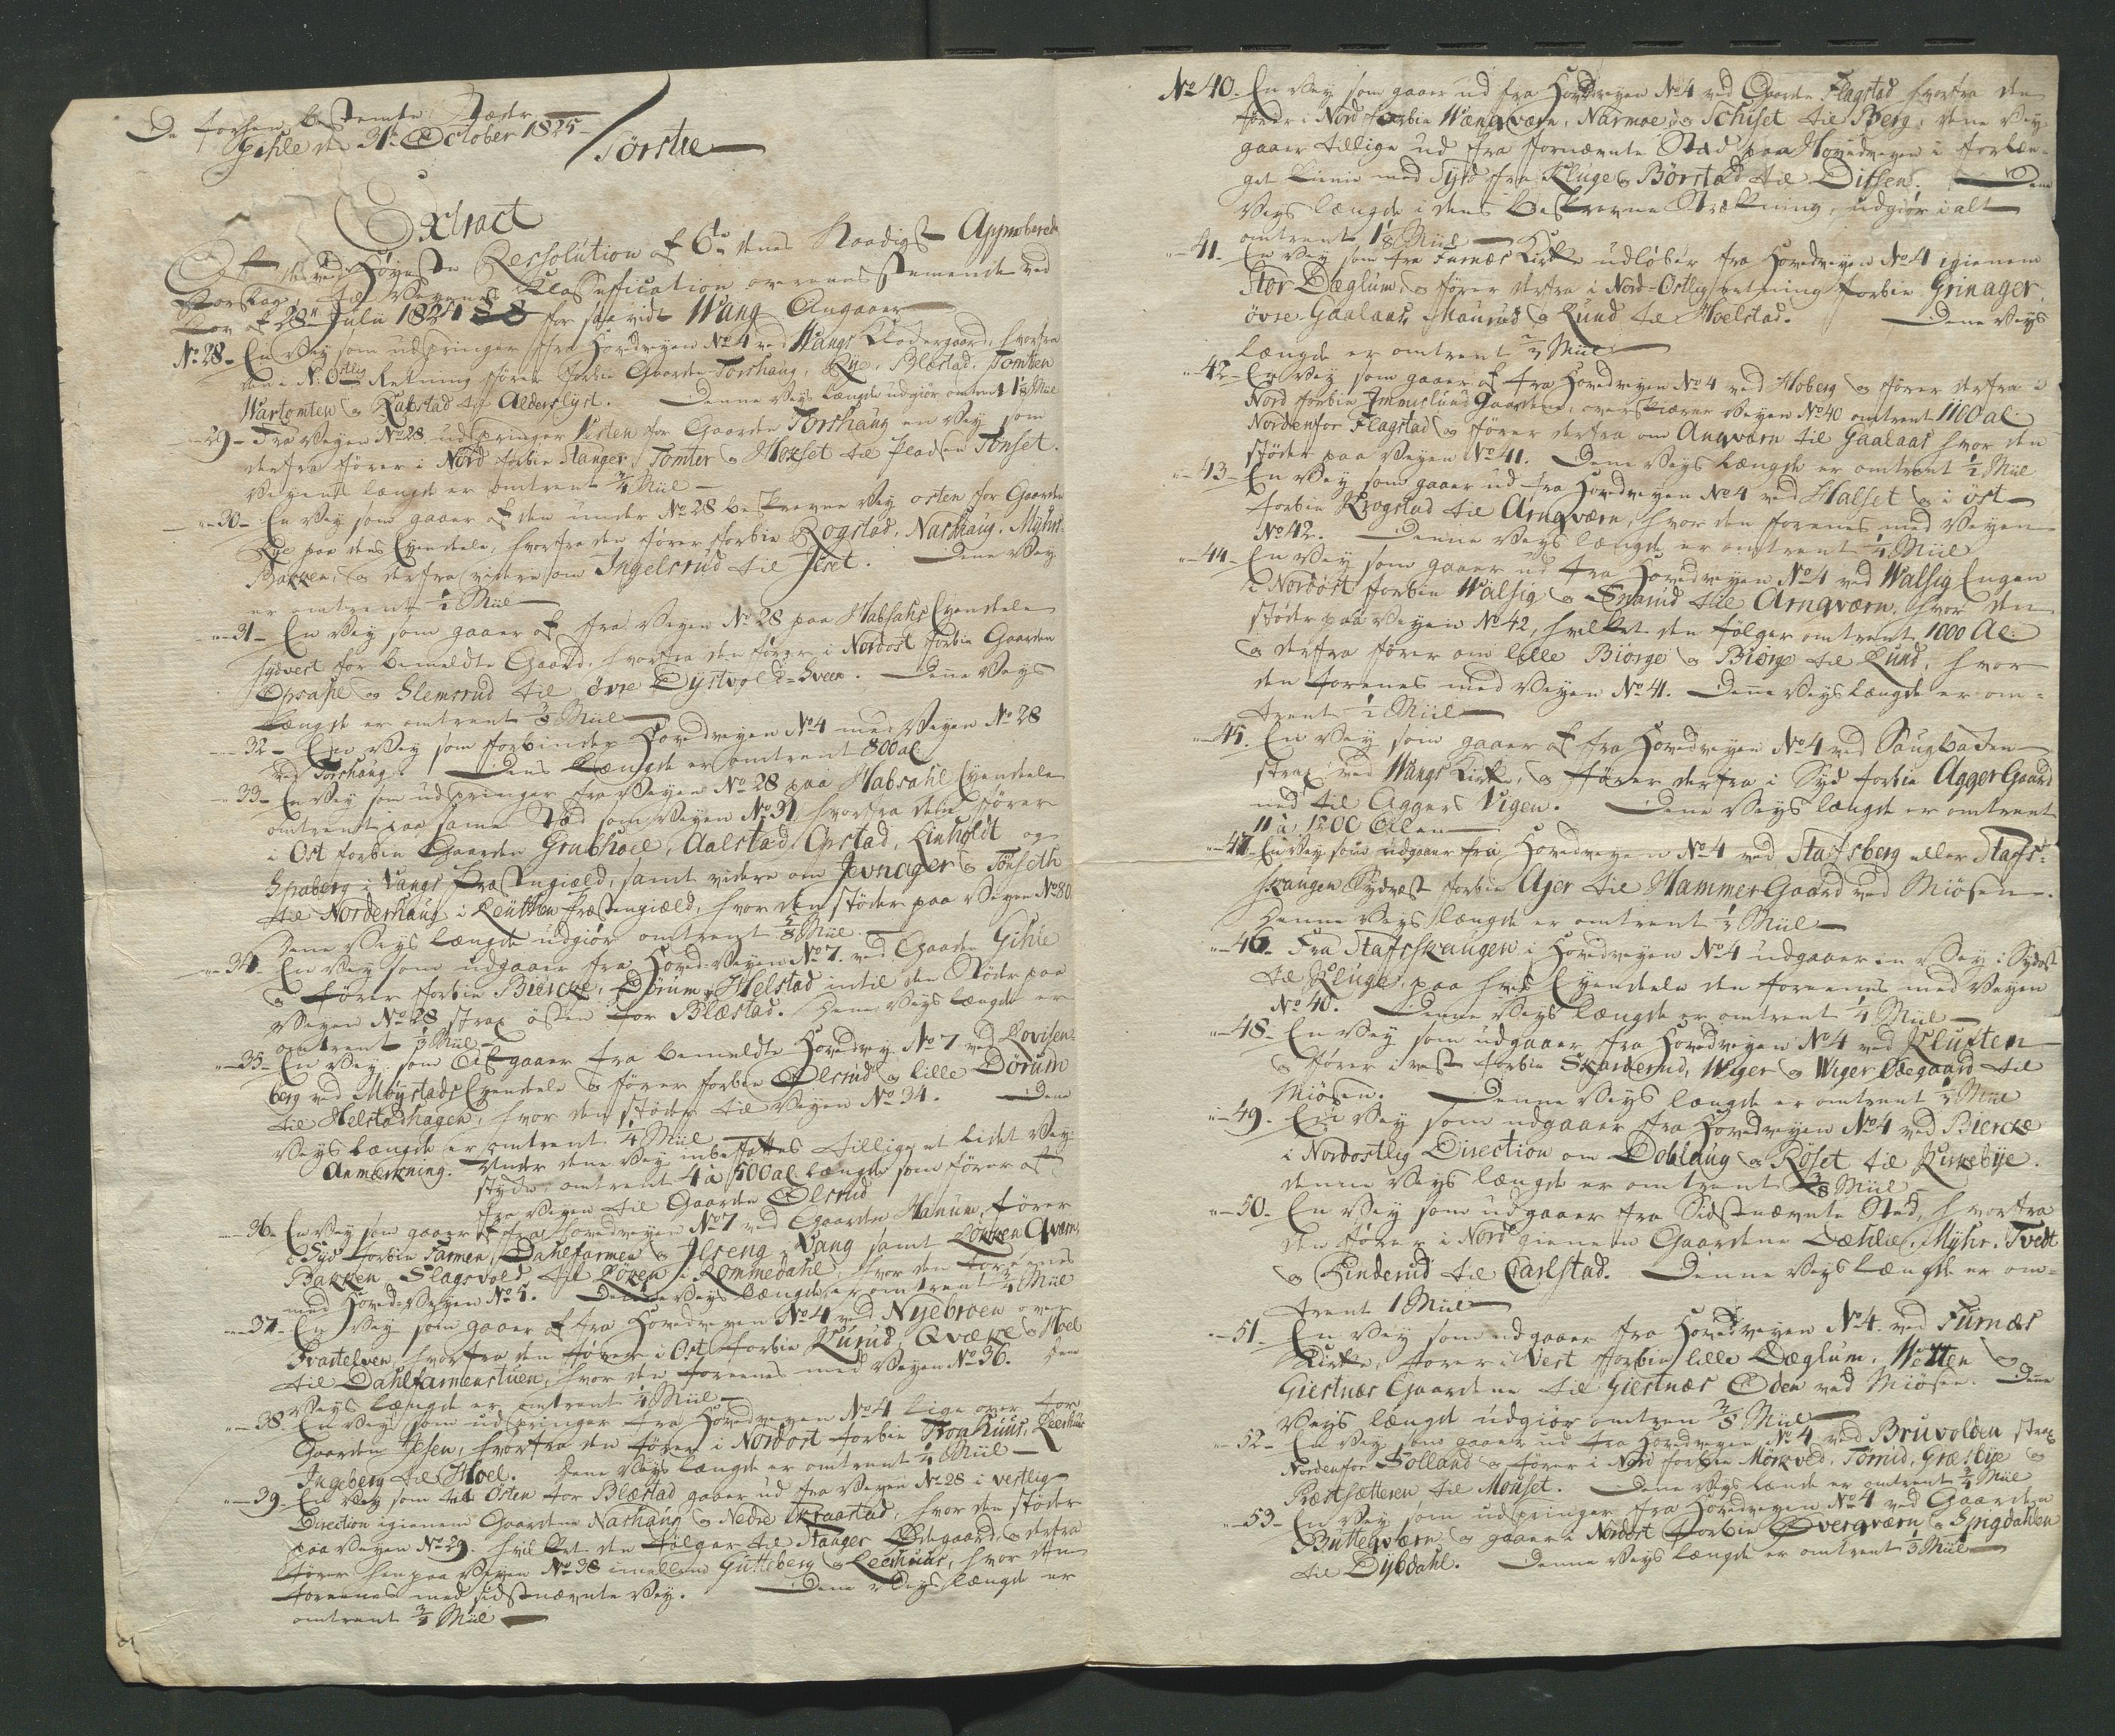 De dertil bestemte Stæder
Gihle den 31te October 1825
Tørstie
Extract
Af det ved Høyeste Resolution af 6te dennes Naadigst Approberede
Forslag til Veyenes Classification overeensstemmende ved
Lov af 28de Julii 1824 for saa vidt Wang Angaaer
No 28- En Vey som udspringer fra Hovedveyen No 4 ved Wangs Klokkergaard, hvorfra
den i N: Ostlig Retning fører forbie Gaarden Torshaug, Rye, Blæstad, Tomten
Wartomten og Kabstad til Alderslyst. Denne Veys længde udgiør omtrent 1 1/8 Miil
-29- Fra Veyen No 28 udspringer Vesten for Gaarden Torshaug en Vey som
derfra fører i Nord forbie Stanger, Tomter og Hoxset til Pladsen Tonset.
Veyens længde er omtrent 3/4 Miil
-30- En Vey som gaaer af den under No 28 beskrevne Vey osten for Gaarden
Rye paa dens Eyendeele, hvorfra den fører forbie Rogstad, Narshaug, Myhrs
Bakken, og derfra videre om Ingelsrud til Jeret. Denne Vey
er omtrent 1/2 Miil
-31- En Vey som gaaer af fra Veyen No 28 paa Habsahls Eyendeele
sydvest for bemeldte Gaard, hvorfra den fører i Nordost forbie Gaarden
Opsahl og Slemsrud til øvre Dystvold-Sveen. Denne Veys
Længde er omtrent 3/8 Miil
-32- En Vey som forbinder Hovedveyen No 4 med Veyen No 28
ved Torshaug. Dens Længde er omtrent 800 al
-33- En Vey som udspringer fra Veyen No 28 paa Habsahl Eyendeele
omtrent paa samme Sted som Veyen No 31, hvorfra den fører
i Ost forbie Gaarden Grubhoel, Aalstad, Opstad, Linholdt og
Spaberg i Vangs Præstegiæld, samt videre om Jevnager og Tonseth
til Norderhaug i Leuthen Præstegiæld, hvor den støder paa Veyen No 80
Denne Veys længde udgiør omtrent 5/8 Miil
-34- En Vey som udgaaer fra Hoved-Veyen No 7 ved Gaarden Gihle
og fører forbie Biercke, Dørum og Helstad indtil den støder paa
Veyen No 28 strax østen for Blæstad. Denne Veys længde er
omtrent 1/3 Miil
-35- En Vey som afgaaer fra bemeldte Hovedvey No 7 ved Lovisen-
berg ved Møystads Eyendeele og fører forbie Ølsrud og lille Dørum
til Helstadhagen, hvor den støder til Veyen No 34. Denne
Veys længde er omtrent 1/4 Miil
Anmærkning. Under denne Vey indbefattes tillige et lidet Vey-
stykke omtrent 4 à 500 al længde som fører af
fra Veyen til Gaarden Ølsrud
-36- En Vey som gaaer af fra Hovedveyen No 7 ved Gaarden Hanum, fører
i Syd forbie Farmen, Dahlfarmen og Ilseng i Vang samt Løkken Qværn
Bakken Slagsvold til Løken i Rommedahl, hvor den foreenes
med Hoved-Veyen No 5. Denne Veys længde er omtrent 3/4 Miil
-37- En Vey som gaaer af fra Hovedveyen No 4 ved Nyebroen over
Svartelven, hvorfra den fører i Ost forbie Rurud, Qvæke og Hoel
til Dahlfarmenstuen, hvor den foreenes med Veyen No 36. Denne
Veys længde er omtrent 1/4 Miil
-38- En Vey som udspringer fra Hovedveyen No 4 lige over for
Gaarden Ifsen, hvorfra den fører i Nordost forbie Storhuus, Leershuus
Ingeberg til Hoel. Denne Veys længde er omtrent 1/4 Miil
-39- En Vey som til Østen for Blæstad gaaer ud fra Veyen No 28 i vestlig
Direction igienem Gaardene Narshaug og Nedre Skraastad, hvor den støder
paa Veyen No 29. hvilket den følger til Stanger Ødegaard og derfra
fører hen paa Veyen No 38 imellem Gutteberg og Leershuus, hvor den
foreenes med sidstnævnte Vey. Denne Veys længde er
omtrent 3/4 Miil
No 40- En Vey som gaaer ud fra Hovedveyen No 4 ved Gaarden Flagstad hvorfra den
fører i Nord forbie Wængværn, Narmoe og Schiset til Berg, denne Vey
gaaer tillige ud fra fornævnte Sted paa Hovedveyen i forlæn-
get Linie mod Syd fra Kluge og Børstad til Disen. Denne
Veys længde i dens beskrevne Strækning, udgiør i alt
omtrent 1 1/8 Miil
-41- En Vey som fra Furnæs Kirke udløber fra Hovedveyen No 4 igienem
Stor Dæglum, og fører derfra i Nord-Ostlig retning forbie Grinager,
øvre Gaalaas, Maurud og Lund til Hoelstad. Denne Veys
længde er omtrent 2/3 Miil
-42- En Vey som gaaer af fra Hovedveyen No 4 ved Hoberg og fører derfra i
Nord forbie Immerslund Gaardene, overskiærer Veyen No 40 omtrent 1100 al:
Nordenfor Flagstad og fører derfra om Anqværn til Gaalaas hvor den
støder paa Veyen No 41. Denne Veys længde er omtrent 1/2 Miil
-43- En Vey som gaaer ud fra Hovedveyen No 4 ved Halset og i øst
forbie Krogstad til Arnqværn, hvor den forenes med Veyen
No 42. Denne Veys længde er omtrent 1/4 Miil
-44- En Vey som gaaer ud fra Hovedveyen No 4 ved Walsig Engen
i Nordost forbie Walsig og Snarud til Arnqværn, hvor den
støder paa Veyen No 42, hvilket den følger omtrent 1000 Al:
og derfra fører om Lille Biørge og Biørge til Lund, hvor
den forenes med Veyen No 41. Denne Veys længde er om-
trent 1/2 Miil
-45. En Vey som gaaer af fra Hovedveyen No 4 ved Saugbaden
strax ved Wangs Kirke, og fører derfra i Syd forbie Agger Gaard
ned til Aggers Vigen. Denne Veys længde er omtrent
11 à 1200 Alen
-47- En Vey som udgaaer fra Hovedveyen No 4 ved Stafsberg eller Stafs-
skaugen Sydvest forbie Ager til Hammer Gaard ved Miøsen.
Denne Veys længde er omtrent 1/2 Miil
-46. Fra Stafsskaugen i Hovedveyen No 4 udgaaer en Vey i Sydost
til Kluge, paa hvis Eyendeele den foreenes med Veyen
No 40. Denne Veys længde er omtrent 1/4 Miil
-48- En Vey som udgaaer fra Hovedveyen No 4 ved Kluften
og fører i vest forbie Skarderud, Wiger og Wiger Ødegaard til
Miøsen. Denne Veys længde er omtrent 1/3 Miil
-49. En Vey som udgaaer fra Hovedveyen No 4 ved Biercke
i Nordostlig Direction om Doblaug og Røset til Kirkebye.
denne Veys længde er omtrent 3/8 Miil
-50. En Vey som udgaaer fra Sidstnævnte Sted, hvorfra
den fører i Nord gienem Gaardene Dæhlie, Myhr, Tvedt
og Hinderud til Carlstad. Denne Veys længde er om-
trent 1 Miil
-51- En Vey som udgaaer fra Hovedveyen No 4 ved Furnæs
Kirke, fører i Vest forbie lille Dæglum, Wetten og
Giestnæs Gaardene til Giestnæs Odden ved Miøsen. Denne
Veys længde udgiør omtren 3/8 Miil
-52- En Vey som gaaer ud fra Hovedveyen No 4 ved Bruvolden strax
Nordenfor Solland og fører i Nord forbie Mørkved, Tomid, Græsbye og
Præstsætteren til Mouset. Denne Veys længde er omtrent 3/4 Miil
-53- En Vey som udspringer fra Hovedveyen No 4 ved Gaarden
Butteqværn og gaaer i Nordost forbie Øverqværn og Spigdahlen
til Dybdahl. Denne Veys længde er omtrent 1/3 Miil